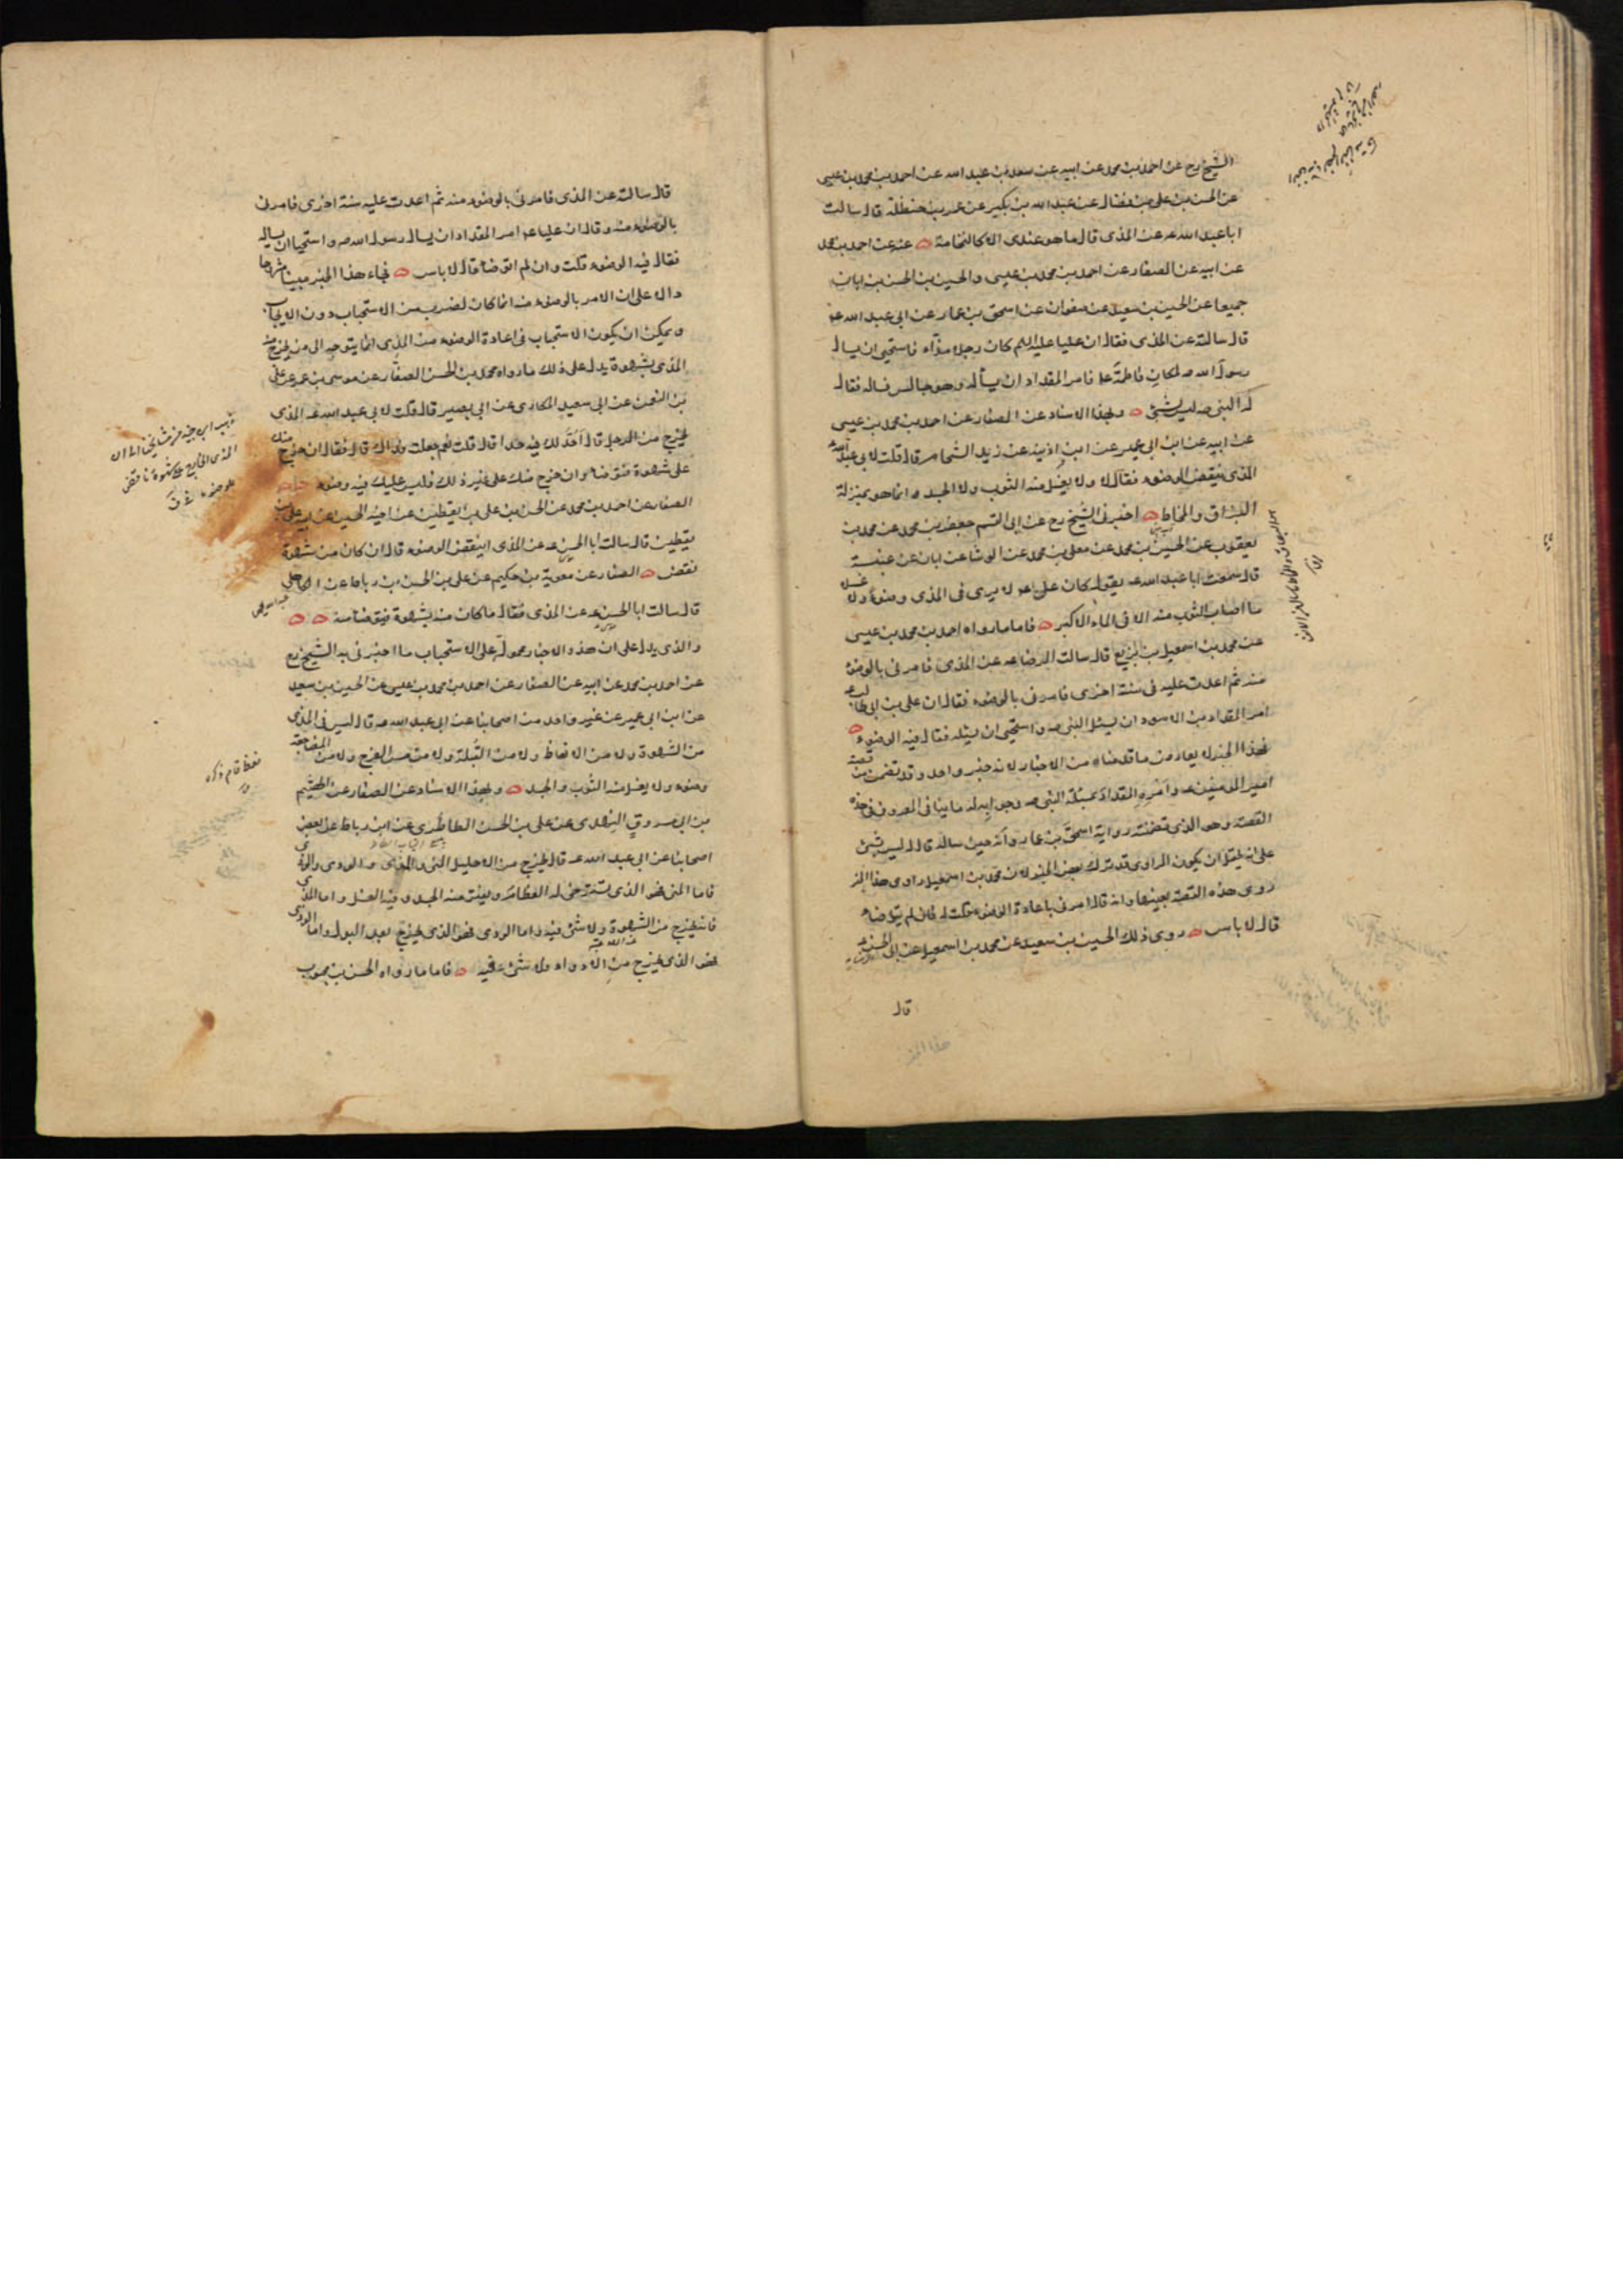 الشيخ رح عن احمد بن محمد عن ابيه عن سعد بن عبد الله عن احمد بن محمد بن عيسى
عن الحسن بن على بن فضال عن عبد الله بن بكير عن عمر بن حنظلة قال سالت
ابا عبد الله عه عن المذى قال ما هو عندى الا كالنخامة عنه عن احمد بن محمد
عن ابيه عن الصفار عن احمد بن محمد بن عيسى والحسين بن الحسن بن ابان
جميعا عن الحسين بن سعيد عن صفوان عن اسحق بن عمار عن ابى عبد الله عه
قال سالته عن المذى فقال ان عليا عليه السلم كان رجلا مذّاء فاستحيى ان يسال
رسول الله صه لمكان فاطمة عا فامر المقداد ان يسأله وهو جالس فساله فقال
له النبى صه ليس بشئ وبهذا الاسناد عن الصفار عن احمد بن محمد بن عيسى
عن ابيه عن ابن ابى عمير عن ابن اذينة عن زيد الشحام قال قلت لابى عبد الله عه
المذى ينقض الوضوء فقال لا ولا يغسل منه الثوب ولا الجسد انما هو بمنزلة
البزاق والمخاط اخبرنى الشيخ رح عن ابى القسم جعفر بن محمد عن محمد بن
يعقوب عن الحسين بن محمد عن معلى بن محمد عن الوشا عن ابان عن عنبسة
قال سمعت ابا عبد الله عه يقول كان على عه لا يرى فى المذى وضوءا ولا غسل
ما اصاب الثوب منه الا فى الماء الاكبر فاما ما رواه احمد بن محمد بن عيسى
عن محمد بن اسمعيل بن بزيع قال سالت الرضا عه عن المذى فامرنى بالوضوء
منه ثم اعدت عليه فى سنة اخرى فامرنى بالوضوء فقال ان على بن ابى طالب عه
امر المقداد بن الاسود ان يسئل النبى صه واستحيى ان يسئله فقال فيه الوضوء
فهذا الخبر لا يعارض ما قدمناه من الاخبار لانه خبر واحد وقد تضمن من قصة
امير المؤمنين عه وامره المقداد بمسئلة النبى صه وجوابه له ما ينافى المعروف فى هذه
القصة وهو الذى تضمنته رواية اسحق بن عمار وانه حين ساله قال له ليس بشئ
على انه يحتمل ان يكون الراوى قد ترك بعض الخبر لان محمد بن اسمعيل راوى هذا الخبر
روى هذه القصة بعينها وانه قال امرنى باعادة الوضوء فقلت له فان لم يتوضا
قال لا باس روى ذلك الحسين بن سعيد عن محمد بن اسمعيل عن ابى الحسن عه
قال
قال سالته عن المذى فامرنى بالوضوء منه ثم اعدت عليه سنة اخرى فامرنى
بالوضوء منه وقال ان عليا عه امر المقداد ان يسال رسول الله صه واستحيا ان يساله
فقال فيه الوضوء قلت وان لم اتوضا قال لا باس فجاء هذا الخبر مبينا مشروحا
دالا على ان الامر بالوضوء منه انما كان لضرب من الاستحباب دون الايجاب
ويمكن ان يكون الاستحباب فى اعادة الوضوء من المذى انما يتوجه الى من يخرج منه
المذى بشهوة يدل على ذلك ما رواه محمد بن الحسن الصفار عن موسى بن عمر عن على
بن النعمن عن ابى سعيد المكارى عن ابى بصير قال قلت لابى عبد الله عه المذى
يخرج من الرجل قال احد لك فيه حدا قال قلت نعم جعلت فداك قال فقال ان خرج منك
على شهوة فتوضا وان خرج منك على غير ذلك فليس عليك فيه وضوء
الصفار عن احمد بن محمد عن الحسن بن على بن يقطين عن اخيه الحسين عن ابيه على بن
يقطين قال سالت ابا الحسن عه عن المذى اينقض الوضوء قال ان كان من شهوة
نقض الصفار عن معوية بن حكيم عن على بن الحسن بن رباط عن الكاهلى
قال سالت ابا الحسن عه عن المذى فقال ما كان منه بشهوة فتوضا منه
والذى يدل على ان هذه الاخبار محمولة على الاستحباب ما اخبرنى به الشيخ رح
عن احمد بن محمد عن ابيه عن الصفار عن احمد بن محمد بن عيسى عن الحسين بن سعيد
عن ابن ابى عمير عن غير واحد من اصحابنا عن ابى عبد الله عه قال ليس فى المذى
من الشهوة ولا من الانعاظ ولا من القبلة ولا من مس الفرج ولا من المضاجعة
وضوء ولا يغسل منه الثوب والجسد وبهذا الاسناد عن الصفار عن الهيثم
بن ابى مسروق النهدى عن على بن الحسن الطاطرى عن ابن رباط عن بعض
اصحابنا عن ابى عبد الله عه قال يخرج من الاحليل المنى والمذى والودى والوذى
فاما المنى فهو الذى تسترخى له العظام ويفتر منه الجسد وفيه الغسل واما المذى
فانه يخرج من الشهوة ولا شئ فيه واما الودى فهو الذى يخرج بعد البول واما الوذى
فهو الذى يخرج من الادواء ولا شئ فيه فاما ما رواه الحسن بن محبوب